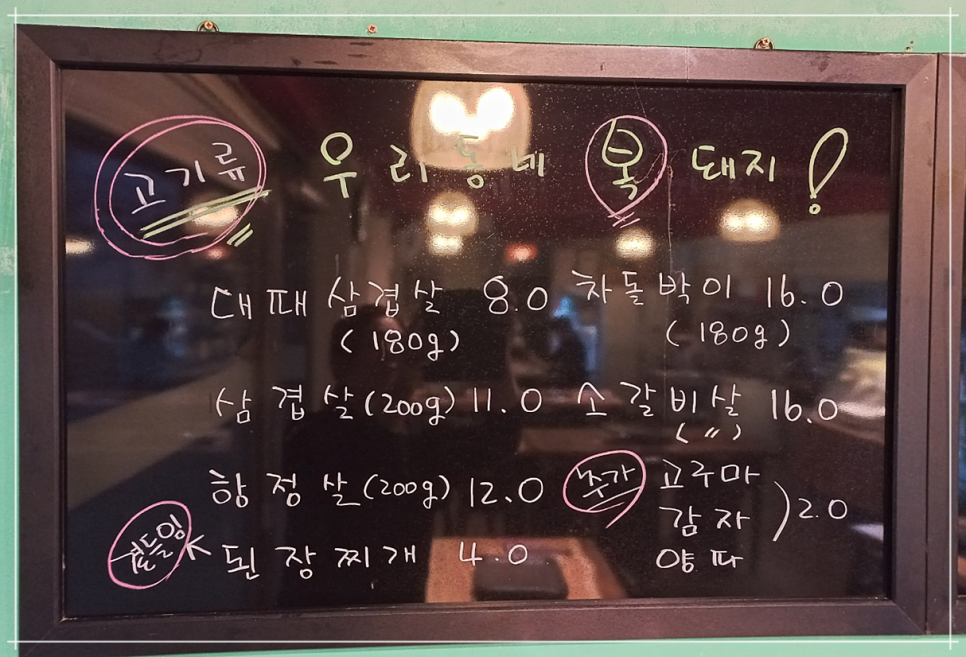 고기류 우리동네 복 돼지!
대패 삼겹살 8.0 차돌박이 16.0
(180g) (180g)
삼겹살(200g) 11.0 소갈비살 16.0
(〃)
항정살(200g) 12.0 추가 고구마
감자 ) 2.0
양파
된장찌개 4.0